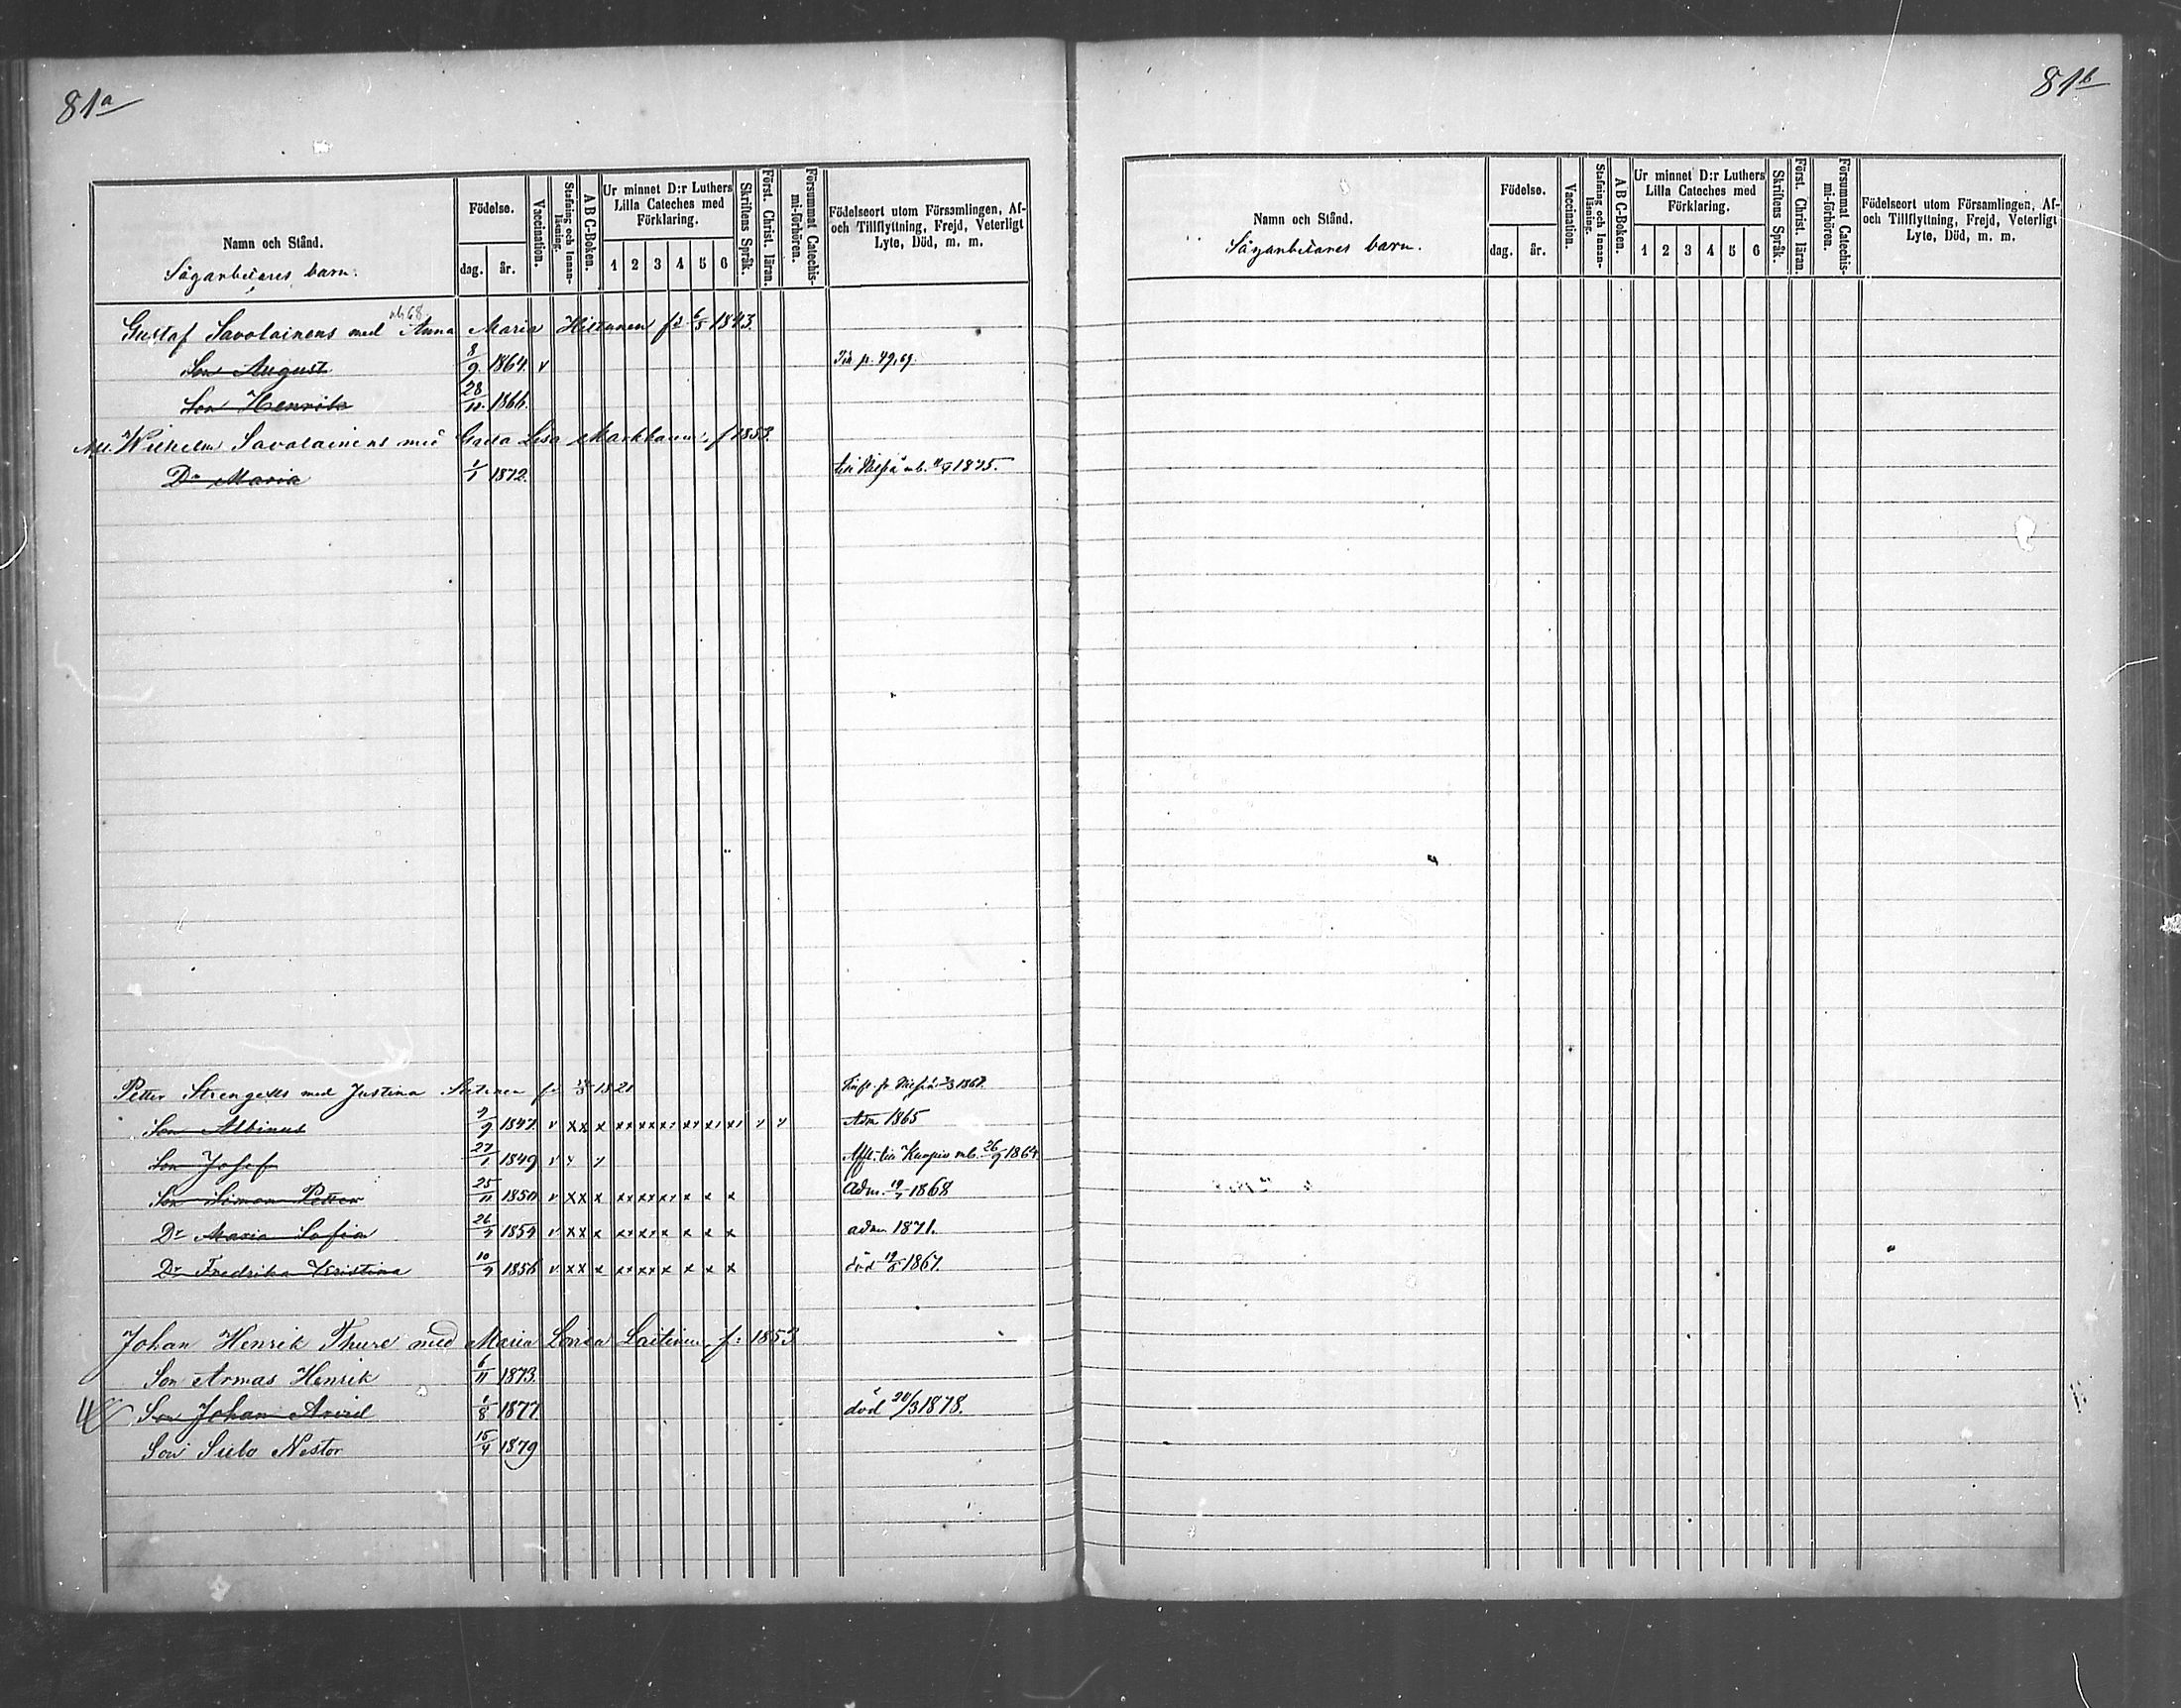 81a
Namn och Stånd.
Sågarbetares barn.
Födelse.
dag. år.
Vaccination.
Stafning och Innanläsning.
A B C-Boken.
Ur minnet D:r Luthers Lilla Cateches med Förklaring.
1 2 3 4 5 6
Skriftens Språk.
Först. Christ. läran.
Försummat Catechismi-förhören.
Födelseort utom Församlingen, Af- och Tillflyttning, Frejd, Veterligt Lyte, Död, m. m.
Gustaf Savolainens med Anna Maria Hiltunen f: 6/5 1843.
Son August 8/9 1864. v p. 49,69.
Son Henrik 28/10. 1866.
Wilhelm Savolainens med Greta Lisa f 1853.
Dr Maria 1/1 1872. 1875.
Petter med Justina f: 1821 1867.
Son Albinus 9/9 1847. v x x x x x x x x x x x x Adm 1865
Son Josef 27/1 1849 v Afft. till Kuopio mb. 26/9 1864
Son Simon Petter 25/11 1850 v x x x x x x x x x x x Adm. 1868
Dr Maria Sofia 1854 v x x x x x x x x x x adm 1871.
Dr Fredrika Kristina 10/9 1856 v x x x x x x x x x x x död 1867.
Johan Henrik Thure med Maria Lovisa Laitinen, f: 1853
Son Armas Henrik 6/11 1873.
Son Johan Arvid 1/8 1877. död 1878.
Son Sulo Nestor 15/4 1879
81b
Namn och Stånd.
Sågarbetares barn.
Födelse.
dag. år.
Vaccination.
Stafning och Innanläsning.
A B C-Boken.
Ur minnet D:r Luthers Lilla Cateches med Förklaring.
1 2 3 4 5 6
Skriftens Språk.
Först. Christ. läran.
Försummat Catechismi-förhören.
Födelseort utom Församlingen, Af- och Tillflyttning, Frejd, Veterligt Lyte, Död, m. m.